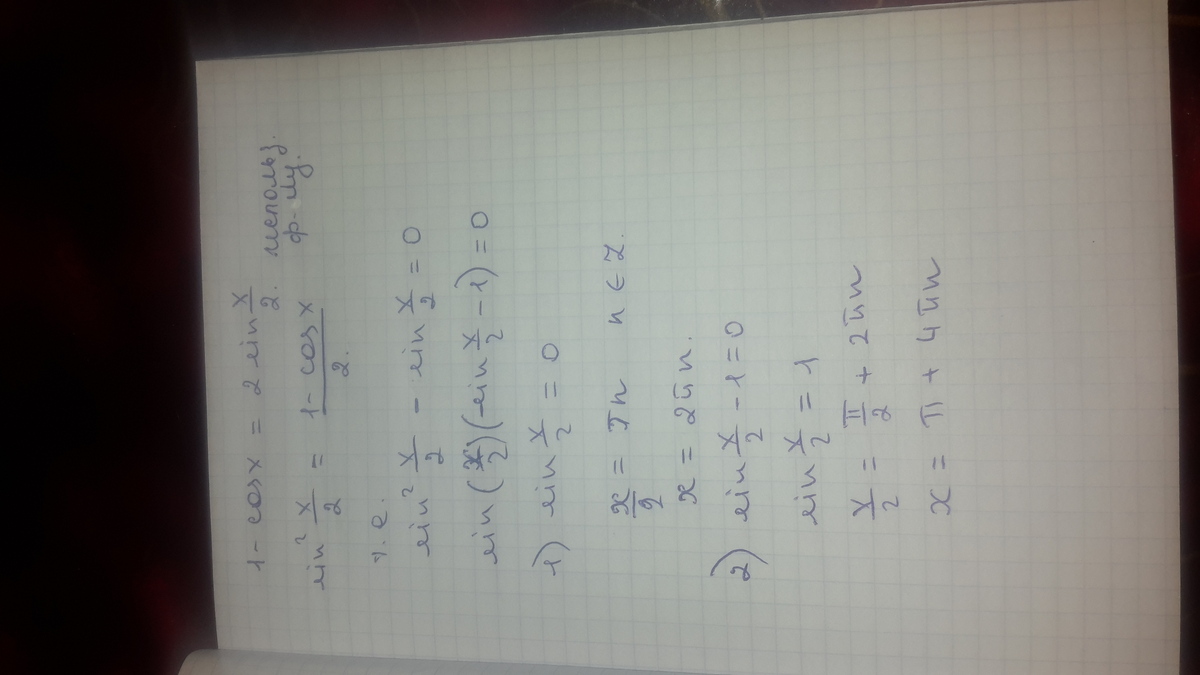 1 - cos x = 2 sin x/2. использ.
ф-лу.
sin² x/2 = (1 - cos x)/2.
т.е.
sin² x/2 - sin x/2 = 0
sin (x/2)(sin x/2 - 1) = 0
1) sin x/2 = 0
x/2 = πn n ∈ Z.
x = 2πn.
2) sin x/2 - 1 = 0
sin x/2 = 1
x/2 = π/2 + 2πn
x = π + 4πn